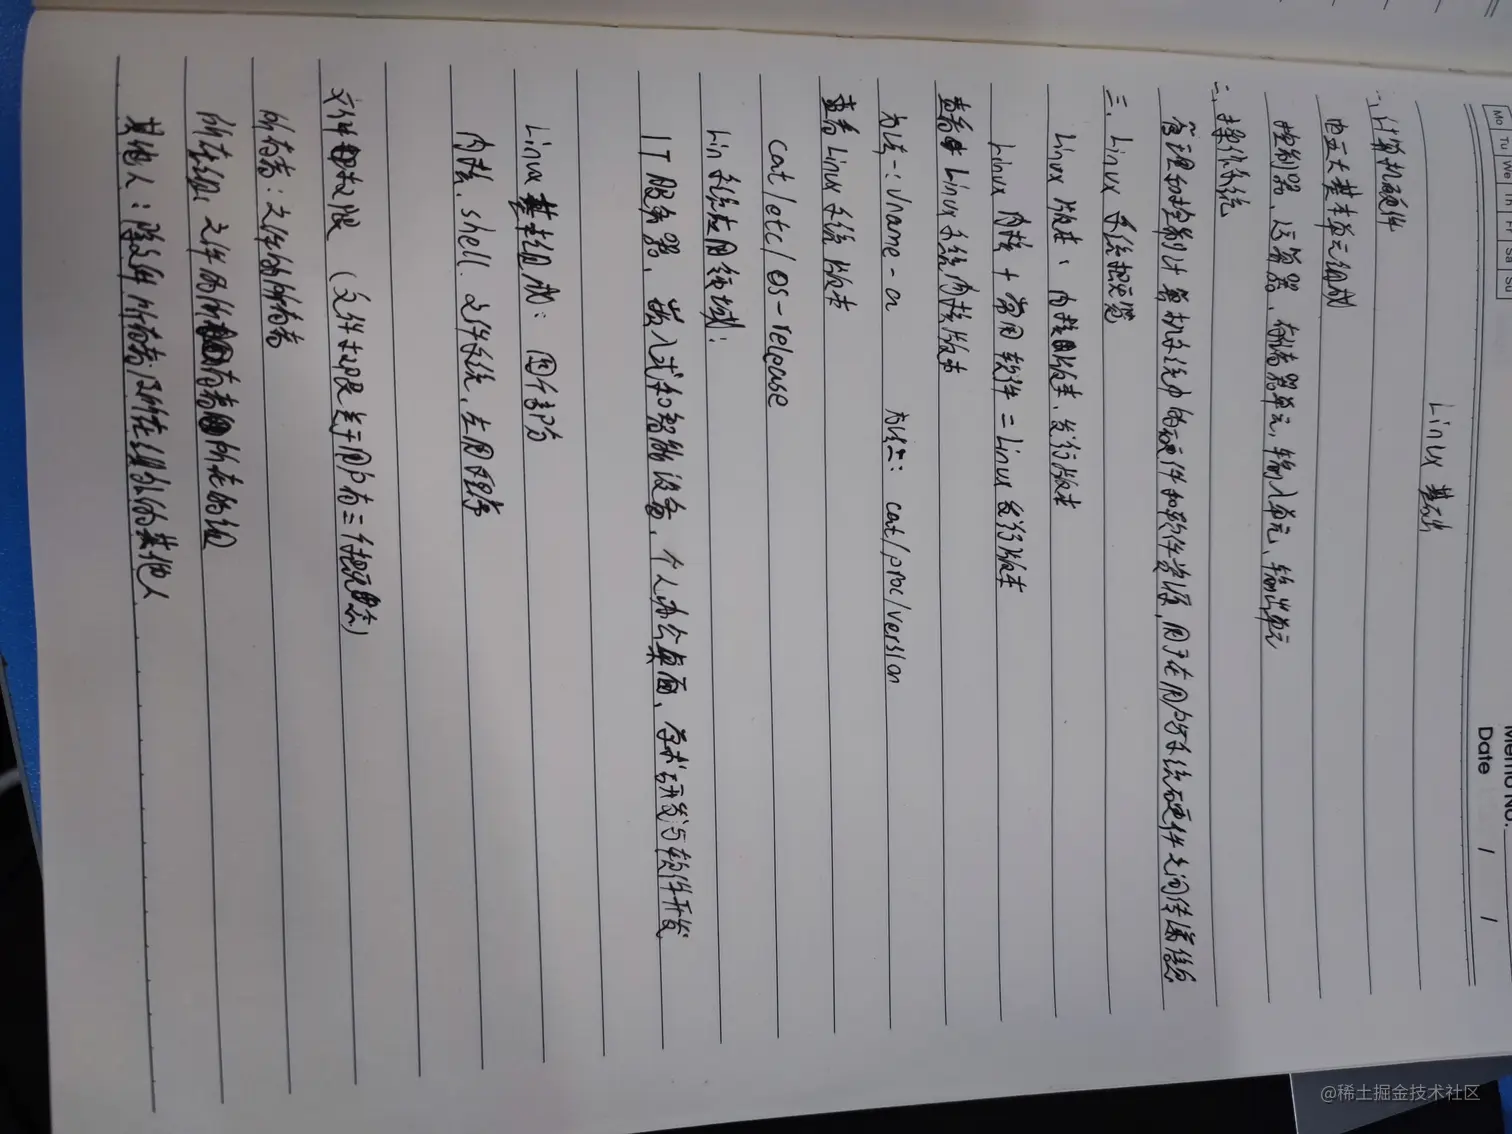 Memo No.
Date / /
Mo Tu We Th Fr Sa Su
Linux 基础
一、计算机硬件
由五大基本单元编成
控制器、运算器、存储器单元、输入单元、输出单元
二、操作系统
管理和控制计算机系统中的硬件和软件资源,用于在用户与系统硬件之间传递信息
三、Linux 系统概览
Linux 版本:内核版本、发行版本
Linux 内核 + 常用软件 = Linux 发行版本
查看 Linux 系统内核版本
方法一:Uname - a 方法二: cat/proc/version
查看 Linux 系统版本
cat/etc/os-release
Lin 系统应用领域:
IT 服务器、嵌入式和智能设备、个人办公桌面、学术研发与软件开发
Linux 基本组成:四个部分
内核、shell、文件系统、应用程序
文件权限 (文件权限关于用户有三个概念)
所有者:文件的所有者
所在组:文件的所有者所在的组
其他人:除文件所有者及所在组外的其他人
@稀土掘金技术社区